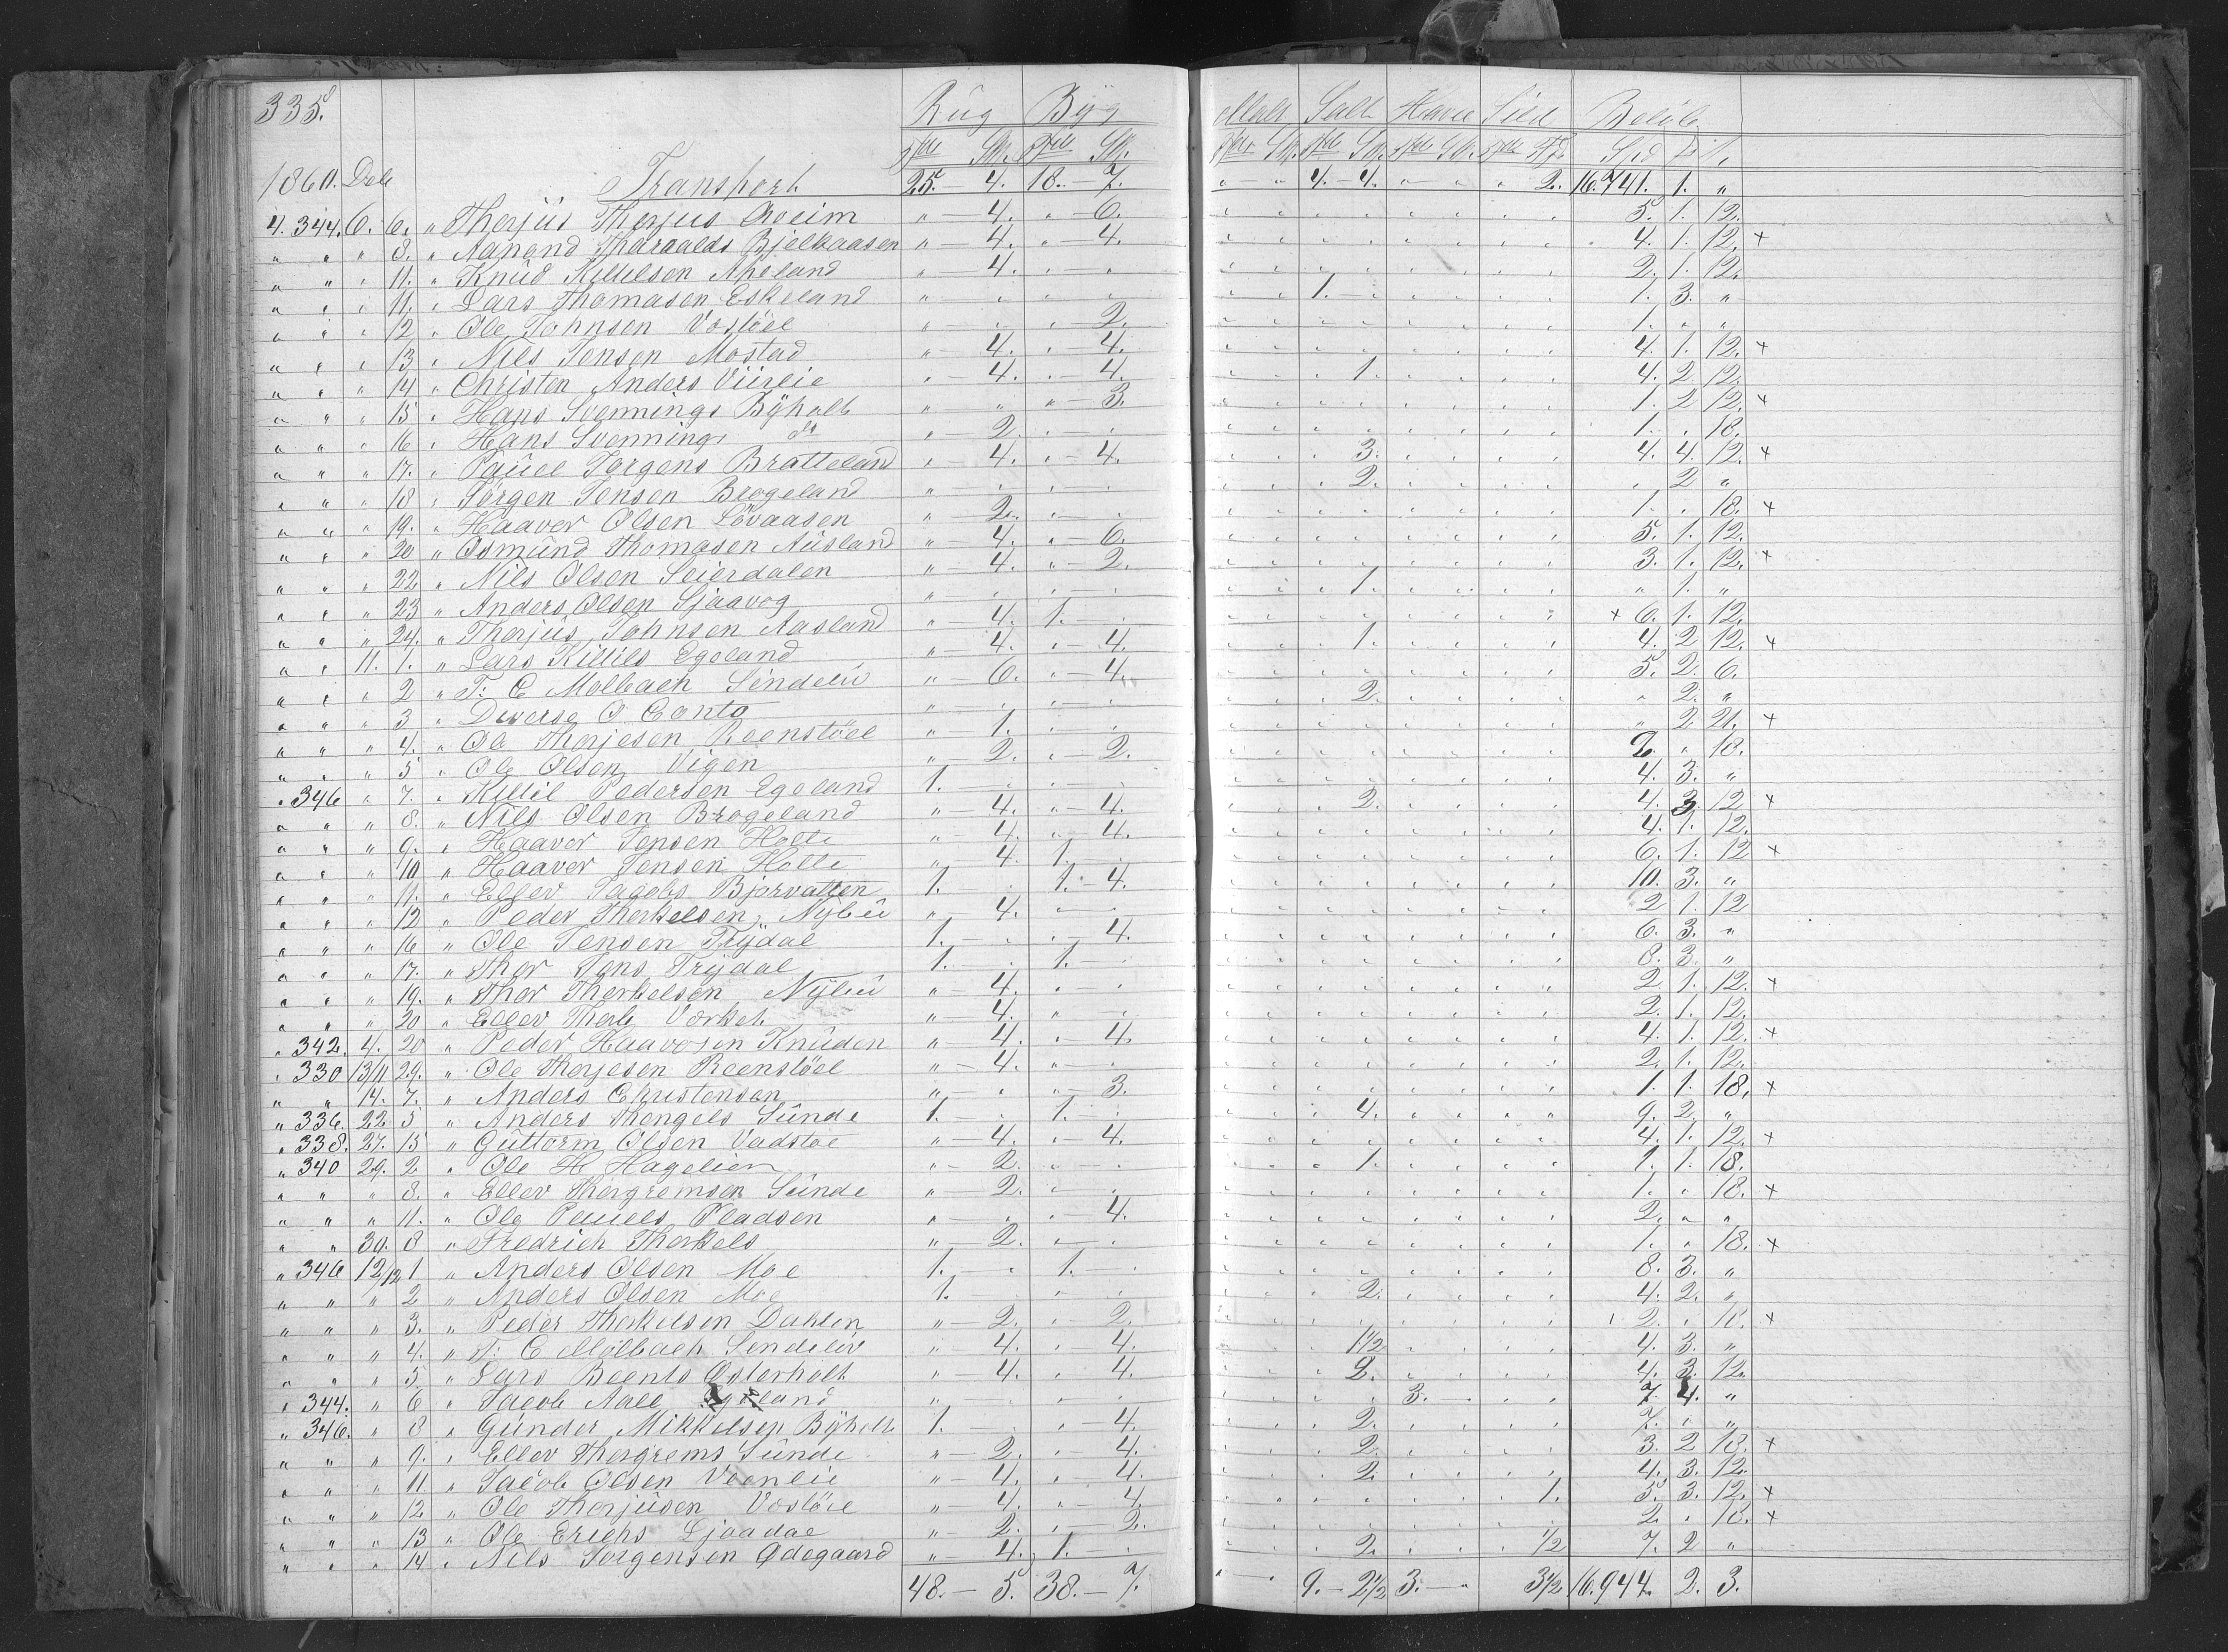 335.
Rug Byg Malt Salt Havre Sild Beløb
Tdr Sk. Tdr Sk. Tdr Sk. Tdr Sk. Tdr Sk. Tdr Fjd. Spd ꝑ s.
1860. Dele Transport 25. — 4. 18. — 7. " " 4. — 4. " " " 2. 16.741. 1. "
4. 344. 6. 6. " Therjus Therjus Aveim " — 4. " — 6. 5. 1. 12.
" " " 8. " Aanond Thoraalds Bjelkaasen " — 4. " — 4. 4. 1. 12. +
" " " 11. " Knud Kittelsen Apeland " 4. " — " 2. 1. 12.
" " " 11. " Lars Thomasen Eskeland " — " " 1. — 1. 3. "
" " " 12 " Ole Johnsen Vostöel " — " — 2. 1. " "
" " " 13 " Nils Jensen Mostad " 4. " — 4. 4. 1. 12. +
" " " 14 " Christen Anders Viirlie " — 4. " — 4. 1. 4. 2 12.
" " " 15 " Hans Svennings Byholt " " " — 3. 1. 2 12. +
" " " 16 " Hans Svennings do " 2. " — " 1. " 18.
" " " 17. " Pauel Jorgens Bratteland " 4. " — 4. 3. 4. 4. 12. +
" " " 18 " Jörgen Jensen Brogeland " — " — " 2. " 2 "
" " " 19. " Haaver Olsen Lövaasen " 2. " — " 1. " 18. +
" " " 20 " Osmund Thomasen Ausland " — 4. " — 6. 5. 1. 12.
" " " 22 " Nils Olsen Seierdalen " — 4. " — 2. 3. 1. 12. +
" " " 23 " Anders Olsen Sjaavog " — " — " 1. " 1. "
" " " 24. " Therjus Johnsen Aasland " — 4. 1. — " + 6. 1. 12.
" " 11. 1. " Lars Kittils Egeland " — 4. " — 4. 1. 4. 2 12. +
" " " 2 " T: C Mølbach Söndeliv " — 6. " — 4. 5. 2. 6.
" " " 3 " Diverse O Conto " — " — " 2. " 2. "
" " " 4. " Ole Therjesen Reenstöel " — 1. " — " " 2 21. +
" " " 5 " Ole Olsen Vigen " — 2. " — 2. 2. " 18.
" 346 " 7. " Kittil Pedersen Egeland 1. 4. 3. "
" " " 8. " Nils Olsen Brogeland " — 4. " — 4. 2. 4. 3 12 +
" " " 9. " Haaver Jensen Holte " — 4. " — 4. 4. 1. 12.
" " " 10 " Haaver Jensen Holte " 4. 1. — " 6. 1. 12 +
" " " 11. " Ellev Jacobs Bjorvatten 1. " 1. — 4. 10. 3. "
" " " 12 " Peder Therkelsen, Nybu " — 4. " — " 2 1. 12
" " " 16 " Ole Jensen Trydal 1. — " " — 4. 6. 3. "
" " " 17. " Thor Jens Trydal 1. — " 1. — " 8. 3. "
" " " 19. " Thor Therkelsen Nybu " — 4. " — " 2 1. 12. +
" " " 20 " Ellev Therk Vorket " — 4. " — " 2. 1. 12.
" 342. 4. 20 " Peder Haavosen Knuden " — 4. " — 4. 4. 1. 12. +
" 330 13/11 29. " Ole Therjesen Reenstöel " — 4. " — " 2. 1. 12.
" " 14. 7. " Anders Christensen " — " " — 3. 1. 1. 18. +
" 336. 22 5 " Anders Thengels Sunde 1. — " 1. — " 4. 9. 2. "
" 338. 27. 15 " Guttorm Olsen Vadstøe " — 4. " — 4. 4. 1. 12. +
" 340 29. 2. " Ole H Hagelien " — 2. " — " 1. 1. 1. 18.
" " " 8. " Ellev Thorgremsen Sunde " — 2. " — " 1. " 18. +
" " " 11. " Ole Pauels Pladsen " — " " — 4. 2. " "
" " 30. 8 " Fredrich Therkels " — 2. " — " 1. " 18. +
" 346 12/12 1 " Anders Olsen Moe 1. — " 1. — " 8. 3. "
" " " 2 " Anders Olsen Moe 1. " — " 2. 4. 2. "
" " " 3. " Peder Therkelsen Dahlen " — 2. " — 2. 2. " 18. +
" " " 4. " T: C Mølbach Sendeliv " 4. " 4. 1½ 4. 3. "
" " " 5 " Lars Beents Osterholt " — 4. " 4. 2. 4. 3. 12.
" 344. " 6 " Jacob Aall 3. 7. 4. "
" 346. " 8 " Gunder Mikkelsen Byholt 1. " — 4. 2. 7. " "
" " " 9. " Ellev Thorgrems Sunde " — 2. " — 4. 2. 3. 2 18. +
" " " 11 " Jacob Olsen Veenlie " — 4. " — 4. 2. 4. 3. 12.
" " " 12 " Ole Therjusen Vostöie " — 4. " — 4. 1. 5. 3. 12. +
" " " 13 " Ole Erichs Ljaadae " — 2. " — 2. 2. " 18. +
" " " 14 " Nils Jorgensen Ødegaard " — 4. 1. — " 2. ½ 7. 2 "
48. — 5. 38. — 7. " — " 9. — 2½ 3. — " 3½ 16.944. 2. 3.